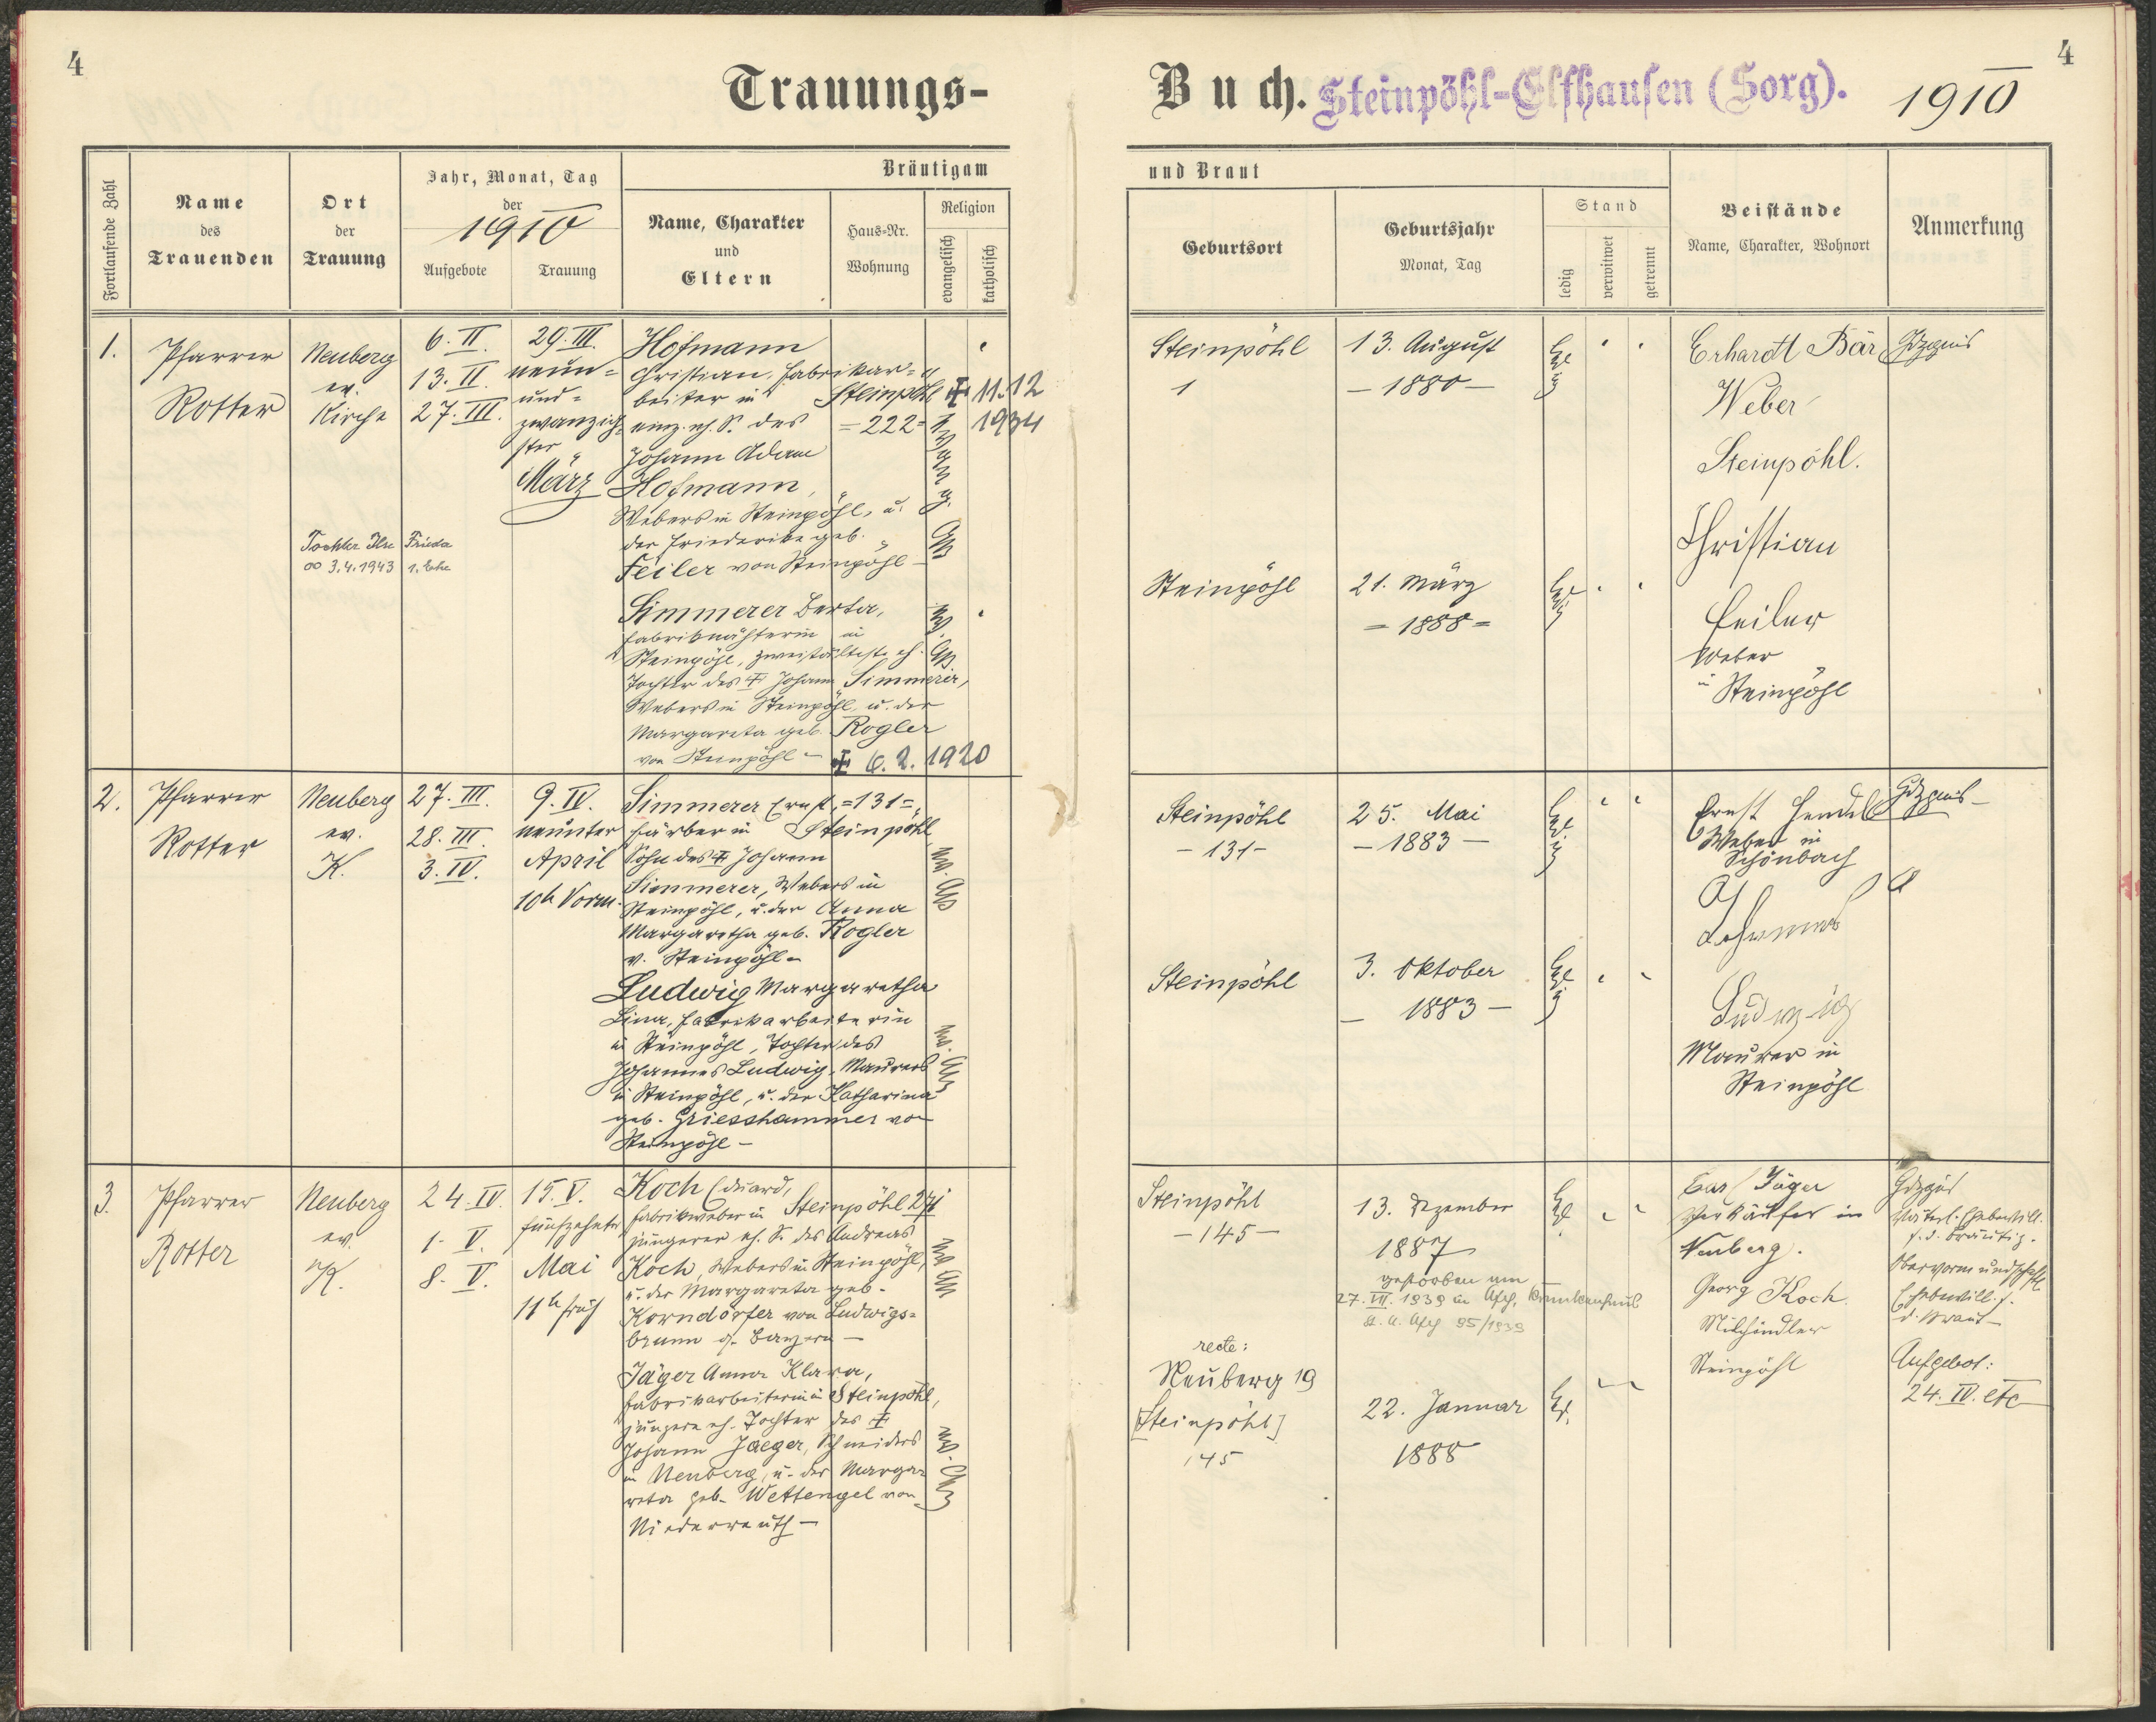 4
Trauungs-
Buch.
Steinpöhl-Elfhausen (Sorg).
1910
4
Fortlaufende Zahl
Name
des
Trauenden
Ort
der
Trauung
Jahr, Monat, Tag
der
1910
Aufgebote
Trauung
Bräutigam
Name, Charakter
und
Eltern
Haus-Nr.
Wohnung
Religion
evangelisch
katholisch
und Braut
Geburtsort
Geburtsjahr
Monat, Tag
Stand
ledig
verwitwet
getrennt
Beistände
Name, Charakter, Wohnort
Anmerkung
1.
Pfarrer
Rotter
Neuberg
ev.
Kirche
6. II.
13. II.
27. III.
29. III.
neun-
und-
zwanzig-
ster
März
Hofmann
Christian, Fabrikar-
beiter in Steinpöhl
einz. eh. S. des =222=
Johann Adam
Hofmann,
Webers in Steinpöhl, u.
der Friederike geb.
Feiler von Steinpöhl
✝ 11.12
1934
Evang.
AB
Tochter Ilse Frieda
∞ 3.4.1943 1. Ehe
Simmerer Berta,
Fabriknähterin in
Steinpöhl, zweitälteste eh.
Tochter des ✝ Johann Simmerer,
Webers in Steinpöhl, u. der
Margareta geb. Rogler
von Steinpöhl -
✝ 6.2.1920
ev.
AB
Steinpöhl
1
13. August
- 1880 -
ledig
Erhardt Bär
Weber
Steinpöhl.
Christian
Feiler
Weber
in Steinpöhl
Steinpöhl
21. März
= 1888 =
ledig
2.
Pfarrer
Rotter
Neuberg
ev.
K.
27. III.
28. III.
3. IV.
9. IV.
neunter
April
10h Vorm.
Simmerer Ernst, =131=,
Färber in Steinpöhl,
Sohn des ✝ Johann
Simmerer, Webers in
Steinpöhl, u. der Anna
Margaretha geb. Rogler
v. Steinpöhl -
ev. AB
Ludwig Margaretha
Lina, Fabrikarbeiterin
in Steinpöhl, Tochter des
Johannes Ludwig, Maurers
in Steinpöhl, u. der Katharina
geb. Griesshammer von
Steinpöhl -
ev. AB
Steinpöhl
- 131 -
25. Mai
- 1883 -
ledig
Ernst Hendel
Weber in
Schönbach
Johannes
Ludwig
Maurer in
Steinpöhl
Steinpöhl
3. Oktober
- 1883 -
ledig
3.
Pfarrer
Rotter
Neuberg
ev.
K.
24. IV.
1. V.
8. V.
15. V.
fünfzehnter
Mai
11h früh
Koch Eduard,
Fabrikweber in Steinpöhl 271
jüngerer eh. S. des Andreas
Koch, Webers in Steinpöhl,
u. der Margareta geb.
Korndörfer von Ludwigs-
brunn
ev. AB
Jäger Anna Klara,
Fabrikarbeiterin in Steinpöhl,
jüngere eh. Tochter des ✝
Johann Jaeger, Schneiders
in Neuberg, u. der Marga-
reta geb. Wettengel von
Niederreuth -
ev. AB
Steinpöhl
- 145 -
13. Dezember
1887
gestorben am
27. VII. 1939 in Asch, Krankenhaus
St. A. Asch 95/1939
led.
Jäger
Verkäufer in
Neuberg.
Georg Koch
Milchhändler
Steinpöhl
väterl. Ehebewill.
f. d. Bräutig.
Obervormundschaftl.
Ehebewill. f.
d. Braut -
Aufgebot:
24. IV. etc
recte:
Neuberg 19
[Steinpöhl]
145
22. Januar
1888
led.